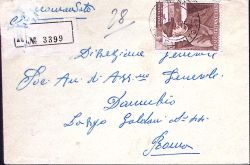 Raccomandata
28
No 3399
Direzione Generale
Soc. An. di Ass.ni Generali
Danubio
Largo Goldoni No 44
Roma